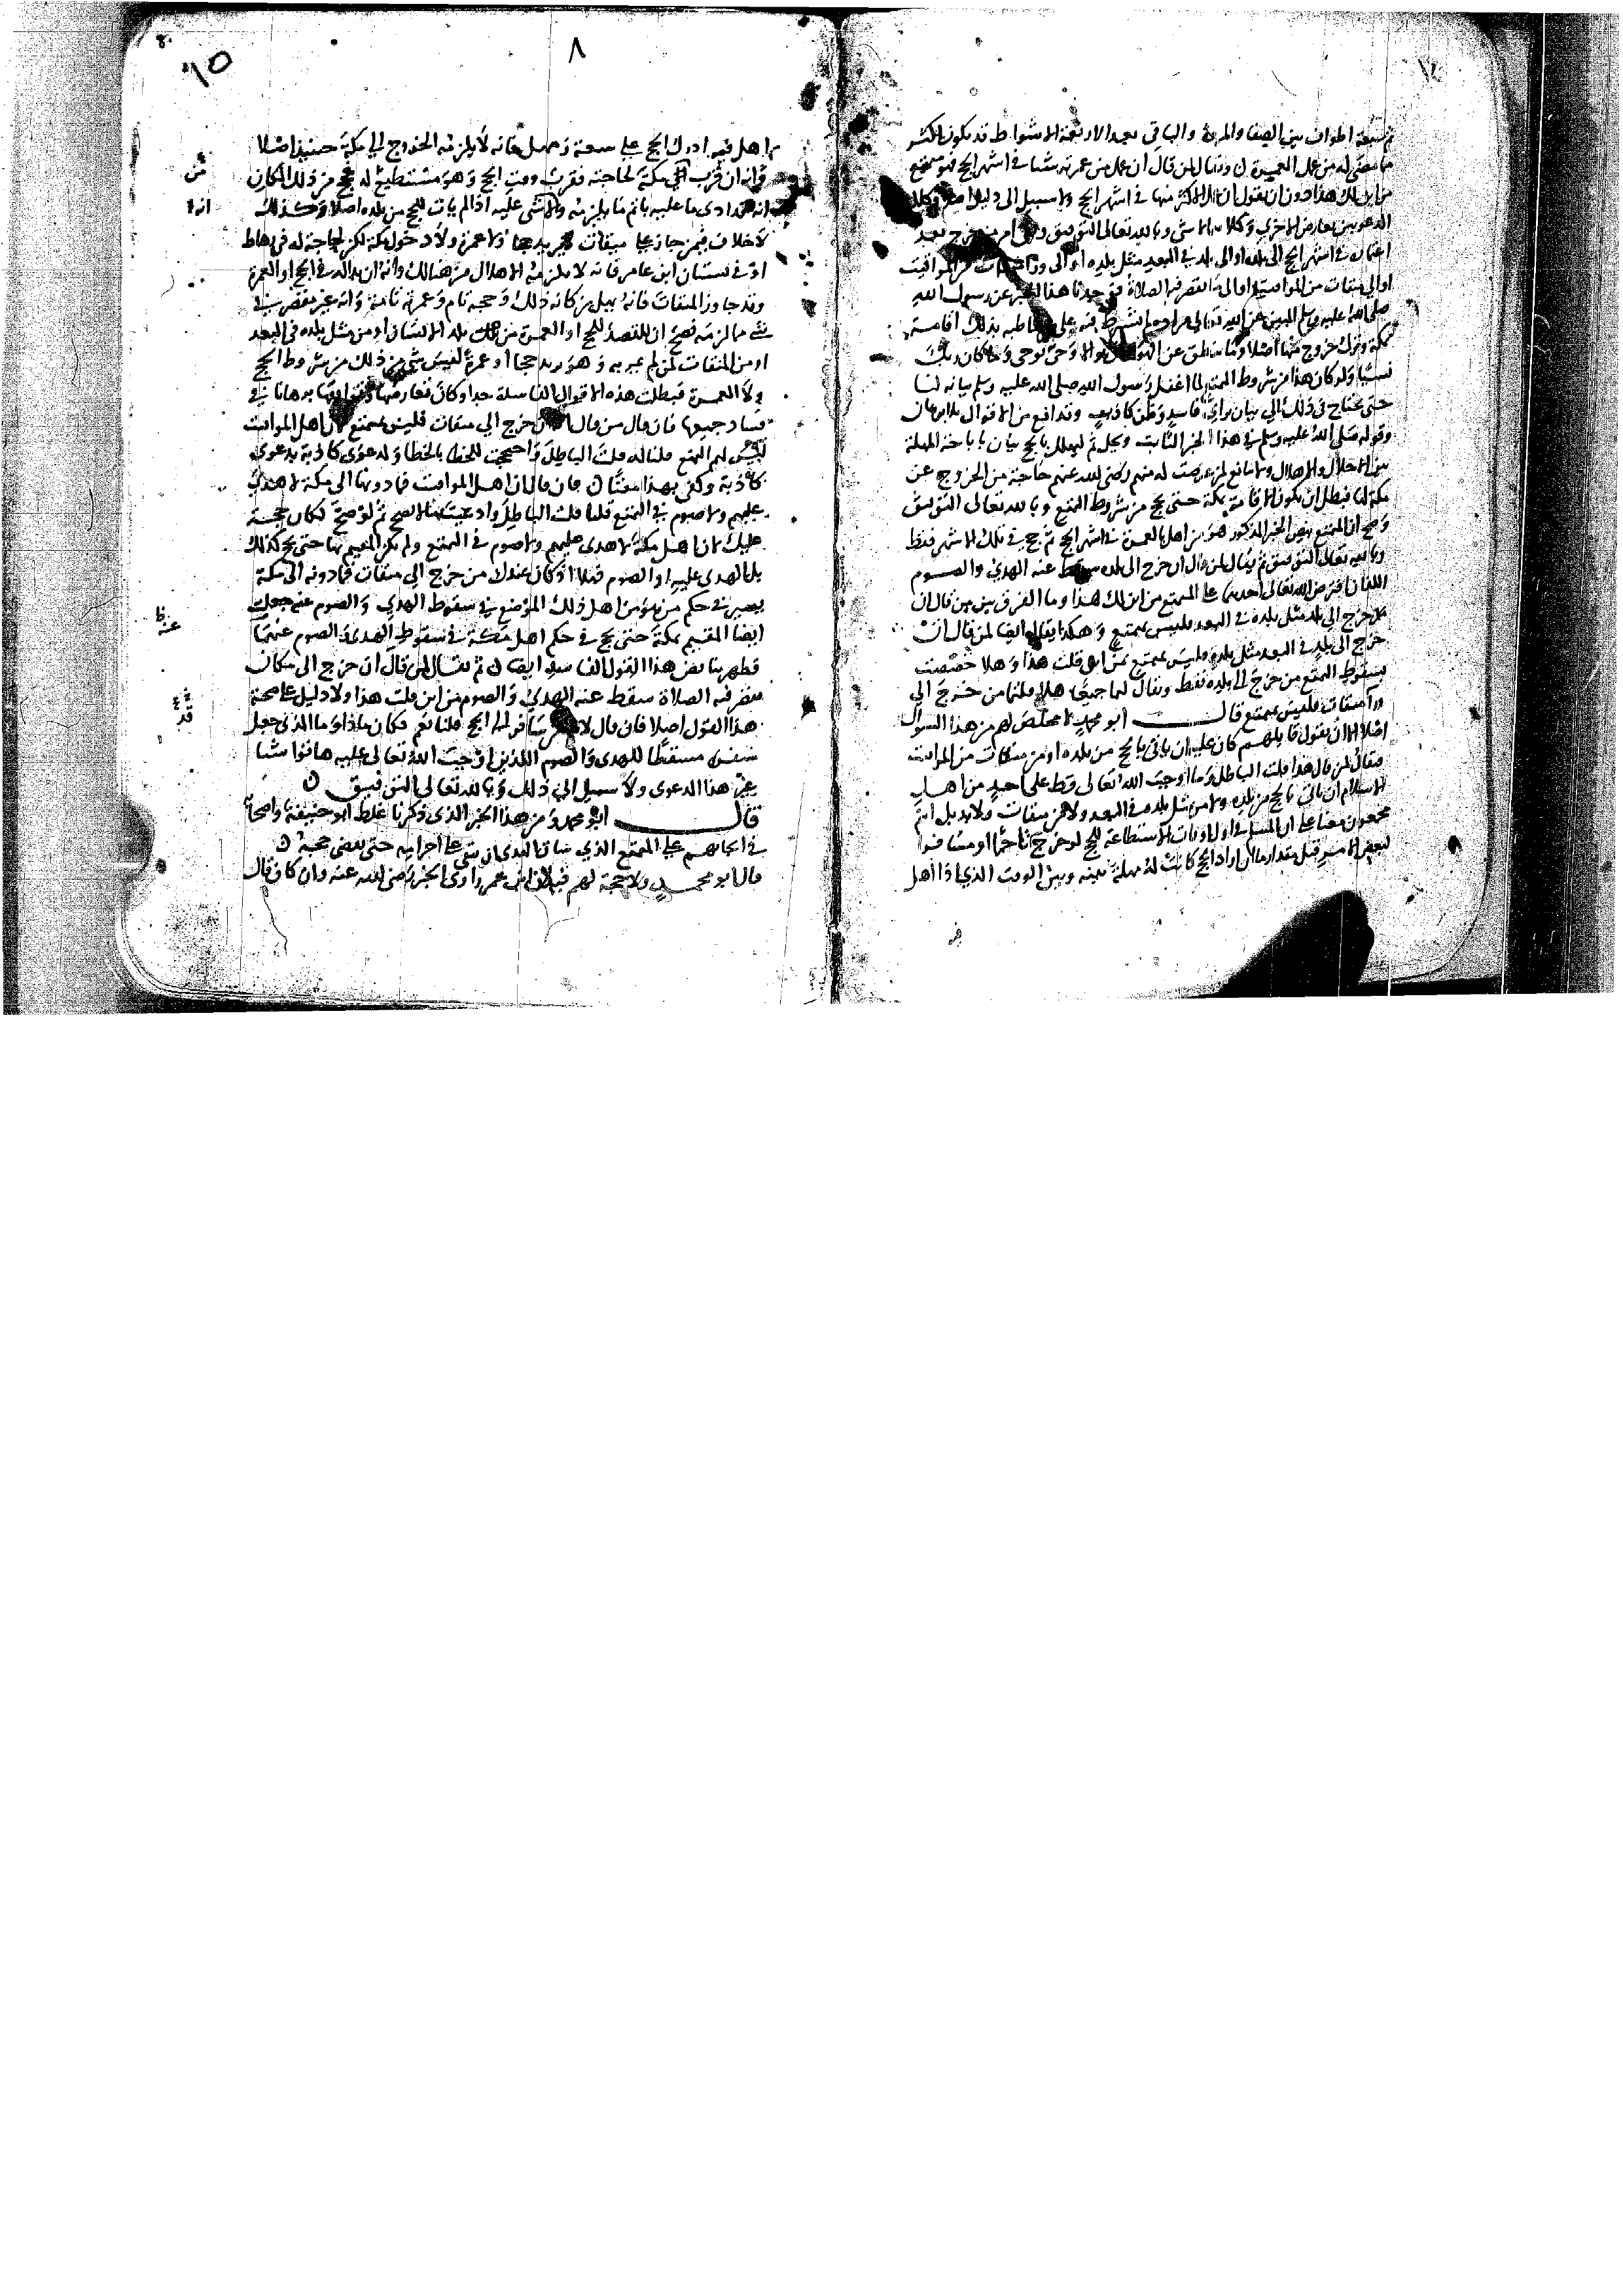 ثم سبعة اطواف بين الصفا والمروة والباقي بعد الاربعة الاشواط قد يكون اكثر
ما مضى له من عمل العمرة ودنا لمن قال ان عمل من عمرته شيئا في اشهر الحج فهو متمتع
من اين لك هذا دون ان تقول ان عمل الاكثر منها في اشهر الحج ولا سبيل الى دليل اصلا وكلا
الدعويين يعارض الاخرى وكلاهما لا شي وبالله تعالى التوفيق واما من خرج بعد
اعتماره في اشهر الحج الى بلده او الى بلد في البعد مثل بلده او الى وراء المواقيت
او الى ميقات من المواقيت او الى ما تقصر فيه الصلاة فوجدنا هذا الخبر عن رسول الله
صلى الله عليه وسلم المبين عن الله تعالى مراده لم يشترط فيه على من خاطبه بذلك اقامة
بمكة وترك خروج عنها اصلا وما ينطق عن الهوى ان هو الا وحي يوحى وما كان ربك
نسيا ولو كان هذا من شروط التمتع لما اغفل رسول الله صلى الله عليه وسلم بيانه لنا
حتى نحتاج في ذلك الى بيان براي فاسد وظن كاذب وتدافع من الاقوال بلا برهان
وقوله صلى الله عليه وسلم في هذا الخبر الثابت ويحل ثم ليهلل بالحج بيان باباحة المهلة
بين الاحلال والاهلال ولا مانع لمن عرضت له منهم رضي الله عنهم حاجة من الخروج عن
مكة لها فبطل ان يكون الاقامة بمكة حتى يحج من شروط التمتع وبالله تعالى التوفيق
وصح ان التمتع بنص الخبر المذكور هو من اهل بالعمرة في اشهر الحج ثم حج في تلك الاشهر فقط
وبالله تعالى التوفيق ثم يقال لمن قال ان خرج الى بلده سقط عنه الهدي والصوم
اللذان افترض الله تعالى احدهما على المتمتع من اين لك هذا وما الفرق بين من قال ان
من خرج الى بلد مثل بلده في البعد فليس بمتمتع وهكذا يقال ايضا لمن قال ان
خرج الى بلد في البعد مثل بلده فليس بمتمتع من اين قلت هذا وهلا خصصت
بسقوط التمتع من خرج الى بلده فقط ويقال لهما جميعا هلا قلتما من خرج الى
وراء ميقات فليس بمتمتع قال ابو محمد لا مخلص لهم من هذا السوال
اصلا الا ان يقول قايلهم كان عليه ان ياتي بالحج من بلده او من ميقات من المواقيت
فيقال لمن قال هذا قلت الباطل وما اوجب الله تعالى قط على احد من اهل
الاسلام ان ياتي بالحج من بلده ولا من مثل بلده في البعد ولا من ميقات ولا بد بل انتم
مجمعون معنا على ان المسلم في اول اوقات الاستطاعة للحج لو خرج تاجرا او مسافرا
لبعض الامر قبل مقدار ما ان اراد الحج كانت له مهلة بينه وبين الوقت الذي اذا اهل
٨
من
انه
ما اهل فيه ادرك الحج على سعة ومهل فانه لا يلزمه الخروج الى مكة حينئذ اصلا
وانه ان قرب الى مكة لحاجته فقرب وقت الحج وهو مستطيع له فحج من ذلك المكان
انه قد ادى ما عليه باتم ما يلزمه ولا شي عليه اذ لم يات للحج من بلده اصلا وكذلك
لا خلاف فيمن جاز على ميقات لا يريد حجا ولا عمرة ولا دخول مكة لكن لحاجة له في رهاط
او في بستان ابن عامر فانه لا يلزمه الاهلال من هنالك وانه ان بدا له في الحج او العمرة
وقد جاوز الميقات فانه يهل من مكانه ذلك وحجه تام وعمرة تامة وانه غير مقصر في
شي مما لزمه فصح ان القصد للحج او العمرة من بلد الانسان او من مثل بلده في البعد
او من الميقات لمن لم يمر به وهو يريد حجا او عمرة ليس شي من ذلك من شروط الحج
ولا العمرة فبطلت هذه الاقوال الفاسدة جدا وكان تعارضها وتوافيها برهانا في
فساد جميعها فان قال من قال ان خرج الى ميقات فليس بمتمتع ان اهل المواقيت
ليس لهم التمتع قلنا له قلت الباطل واحتججت للخطا بالخطا ولدعوى كاذبة بدعوى
كاذبة وكفى بهذا مقتا فان قال ان اهل المواقيت فما دونها الى مكة لا هدي
عليهم ولا صوم في التمتع قلنا قلت الباطل وادعيت ما لا يصح ثم لو صح لكان حجة
عليك لان اهل مكة لا هدي عليهم ولا صوم في التمتع ولم يكن المقيم بها حتى يحج كذلك
بل الهدي عليه او الصوم فهلا اذ كان عندك من خرج الى ميقات فما دونه الى مكة
يصير في حكم من هو من اهل ذلك الموضع في سقوط الهدي والصوم عنه جعلت
ايضا المقيم بمكة حتى يحج في حكم اهل مكة في سقوط الهدي والصوم عنهما
فظهر تناقض هذا القول الفاسد ايضا ثم نسال من قال ان خرج الى مكان
تقصر فيه الصلاة سقط عنه الهدي والصوم من اين قلت هذا ولا دليل على صحة
هذا القول اصلا فان قال لانه سافر الى الحج قلنا نعم فكان ماذا وما الذي جعل
سفره مسقطا للهدي والصوم اللذين اوجبت الله تعالى عليه هاتوا شيا
غير هذا الدعوى ولا سبيل الى ذلك وبالله تعالى التوفيق
قال ابو محمد ومن هذا الخبر الذي ذكرنا غلط ابو حنيفة واصحابه
في ايجابهم على المتمتع الذي ساق الهدي ان يبقى على احرامه حتى يقضي حجه
قال ابو محمد ولا حجة لهم فيه لان ابن عمر راوي الخبر رضي الله عنه وان كان قال
عنه
قد